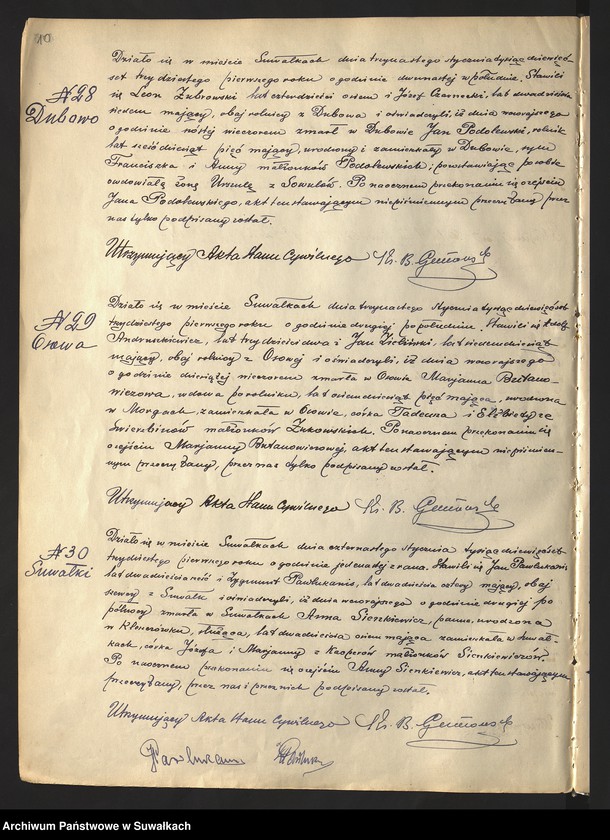 № 28
Dubowo
Działo się w mieście Suwałkach dnia trzynastego stycznia tysiąc dziewięć-
set trzydziestego pierwszego roku o godzinie dwunastej w południe. Stawili
się Leon Zubrowski lat czterdzieści osiem i Józef Czarnecki, lat dwadzieścia
siedem mający, obaj rolnicy z Dubowa i oświadczyli, iż dnia wczorajszego
o godzinie szóstej wieczorem zmarł w Dubowie Jan Podolewski, rolnik
lat sześćdziesiąt pięć mający, urodzony i zamieszkały w Dubowie, syn
Franciszka i Anny małżonków Podolewskich; pozostawiając po sobie
owdowiałą żonę Urszulę z Sowulów. Po naocznem przekonaniu się o zejściu
Jana Podolewskiego, akt ten stawającym niepiśmiennym przeczytany przez
nas tylko podpisany został.
Utrzymujący Akta Stanu Cywilnego Ks. B.
№ 29
Osowa
Działo się w mieście Suwałkach dnia trzynastego stycznia tysiąc dziewięćset
trzydziestego pierwszego roku o godzinie drugiej po południu. Stawili się
Andruszkiewicz, lat trzydzieści dwa i Jan Zieliński, lat siedemdziesiąt
mający, obaj rolnicy z Osowej i oświadczyli, iż dnia wczorajszego
o godzinie dziesiątej wieczorem zmarła w Osowie Marjanna Bułano-
wiczowa, wdowa po rolniku, lat osiemdziesiąt pięć mająca, urodzona
w Morgach, zamieszkała w Osowie, córka Tadeusza i Elżbiety ze
małżonków Żukowskich. Po naocznem przekonaniu się
o zejściu Marjanny Bułanowiczowej, akt ten stawającym niepiśmien-
nym przeczytany, przez nas tylko podpisany został.
Utrzymujący Akta Stanu Cywilnego Ks. B.
№ 30
Suwałki
Działo się w mieście Suwałkach dnia czternastego stycznia tysiąc dziewięćset
trzydziestego pierwszego roku o godzinie jedenastej z rana. Stawili się Jan Pawlukanis
lat dwadzieścia sześć i Zygmunt Pawlukanis, lat dwadzieścia cztery mający, obaj
szewcy z Suwałk i oświadczyli, iż dnia wczorajszego o godzinie drugiej po
północy zmarła w Suwałkach Anna Sienkiewicz, panna, urodzona
w Kleszczówku, służąca, lat dwadzieścia osiem mająca zamieszkała w Suwał-
kach, córka Józefa i Marjanny z Kacprów małżonków Sienkiewiczów.
Po naocznem przekonaniu się o zejściu Anny Sienkiewicz, akt ten stawającym
przeczytany, przez nas i przez nich podpisany został.
Utrzymujący Akta Stanu Cywilnego Ks. B.
Archiwum Państwowe w Suwałkach